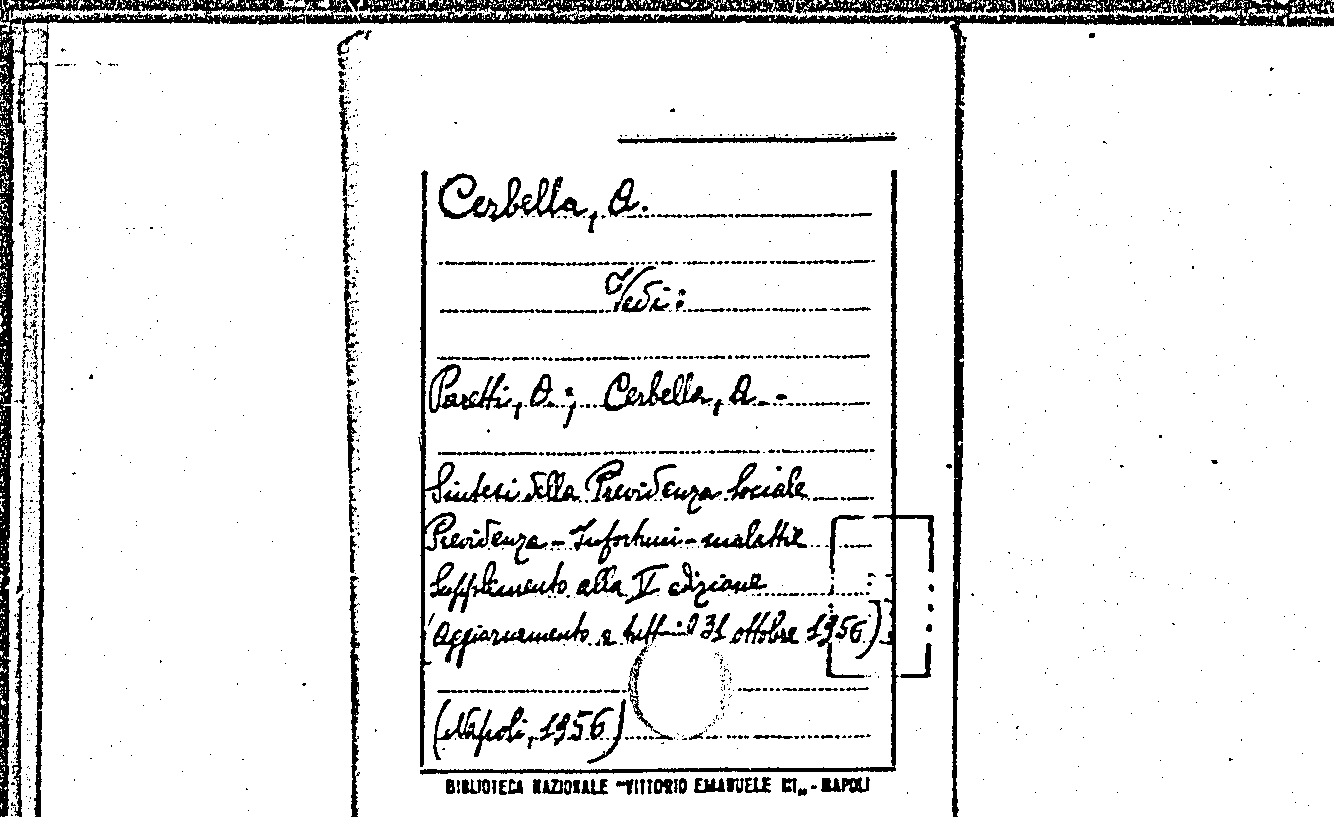 Cerbella, A.
Vedi:
Paretti, A.; Cerbella, A. -
Sintesi della Previdenza Sociale
Previdenza - Infortuni - malattie
Supplemento alla V edizione
(Aggiornamento a tutt il 31 ottobre 1956)
(Napoli, 1956)
BIBLIOTECA NAZIONALE "VITTORIO EMANUELE III" - NAPOLI